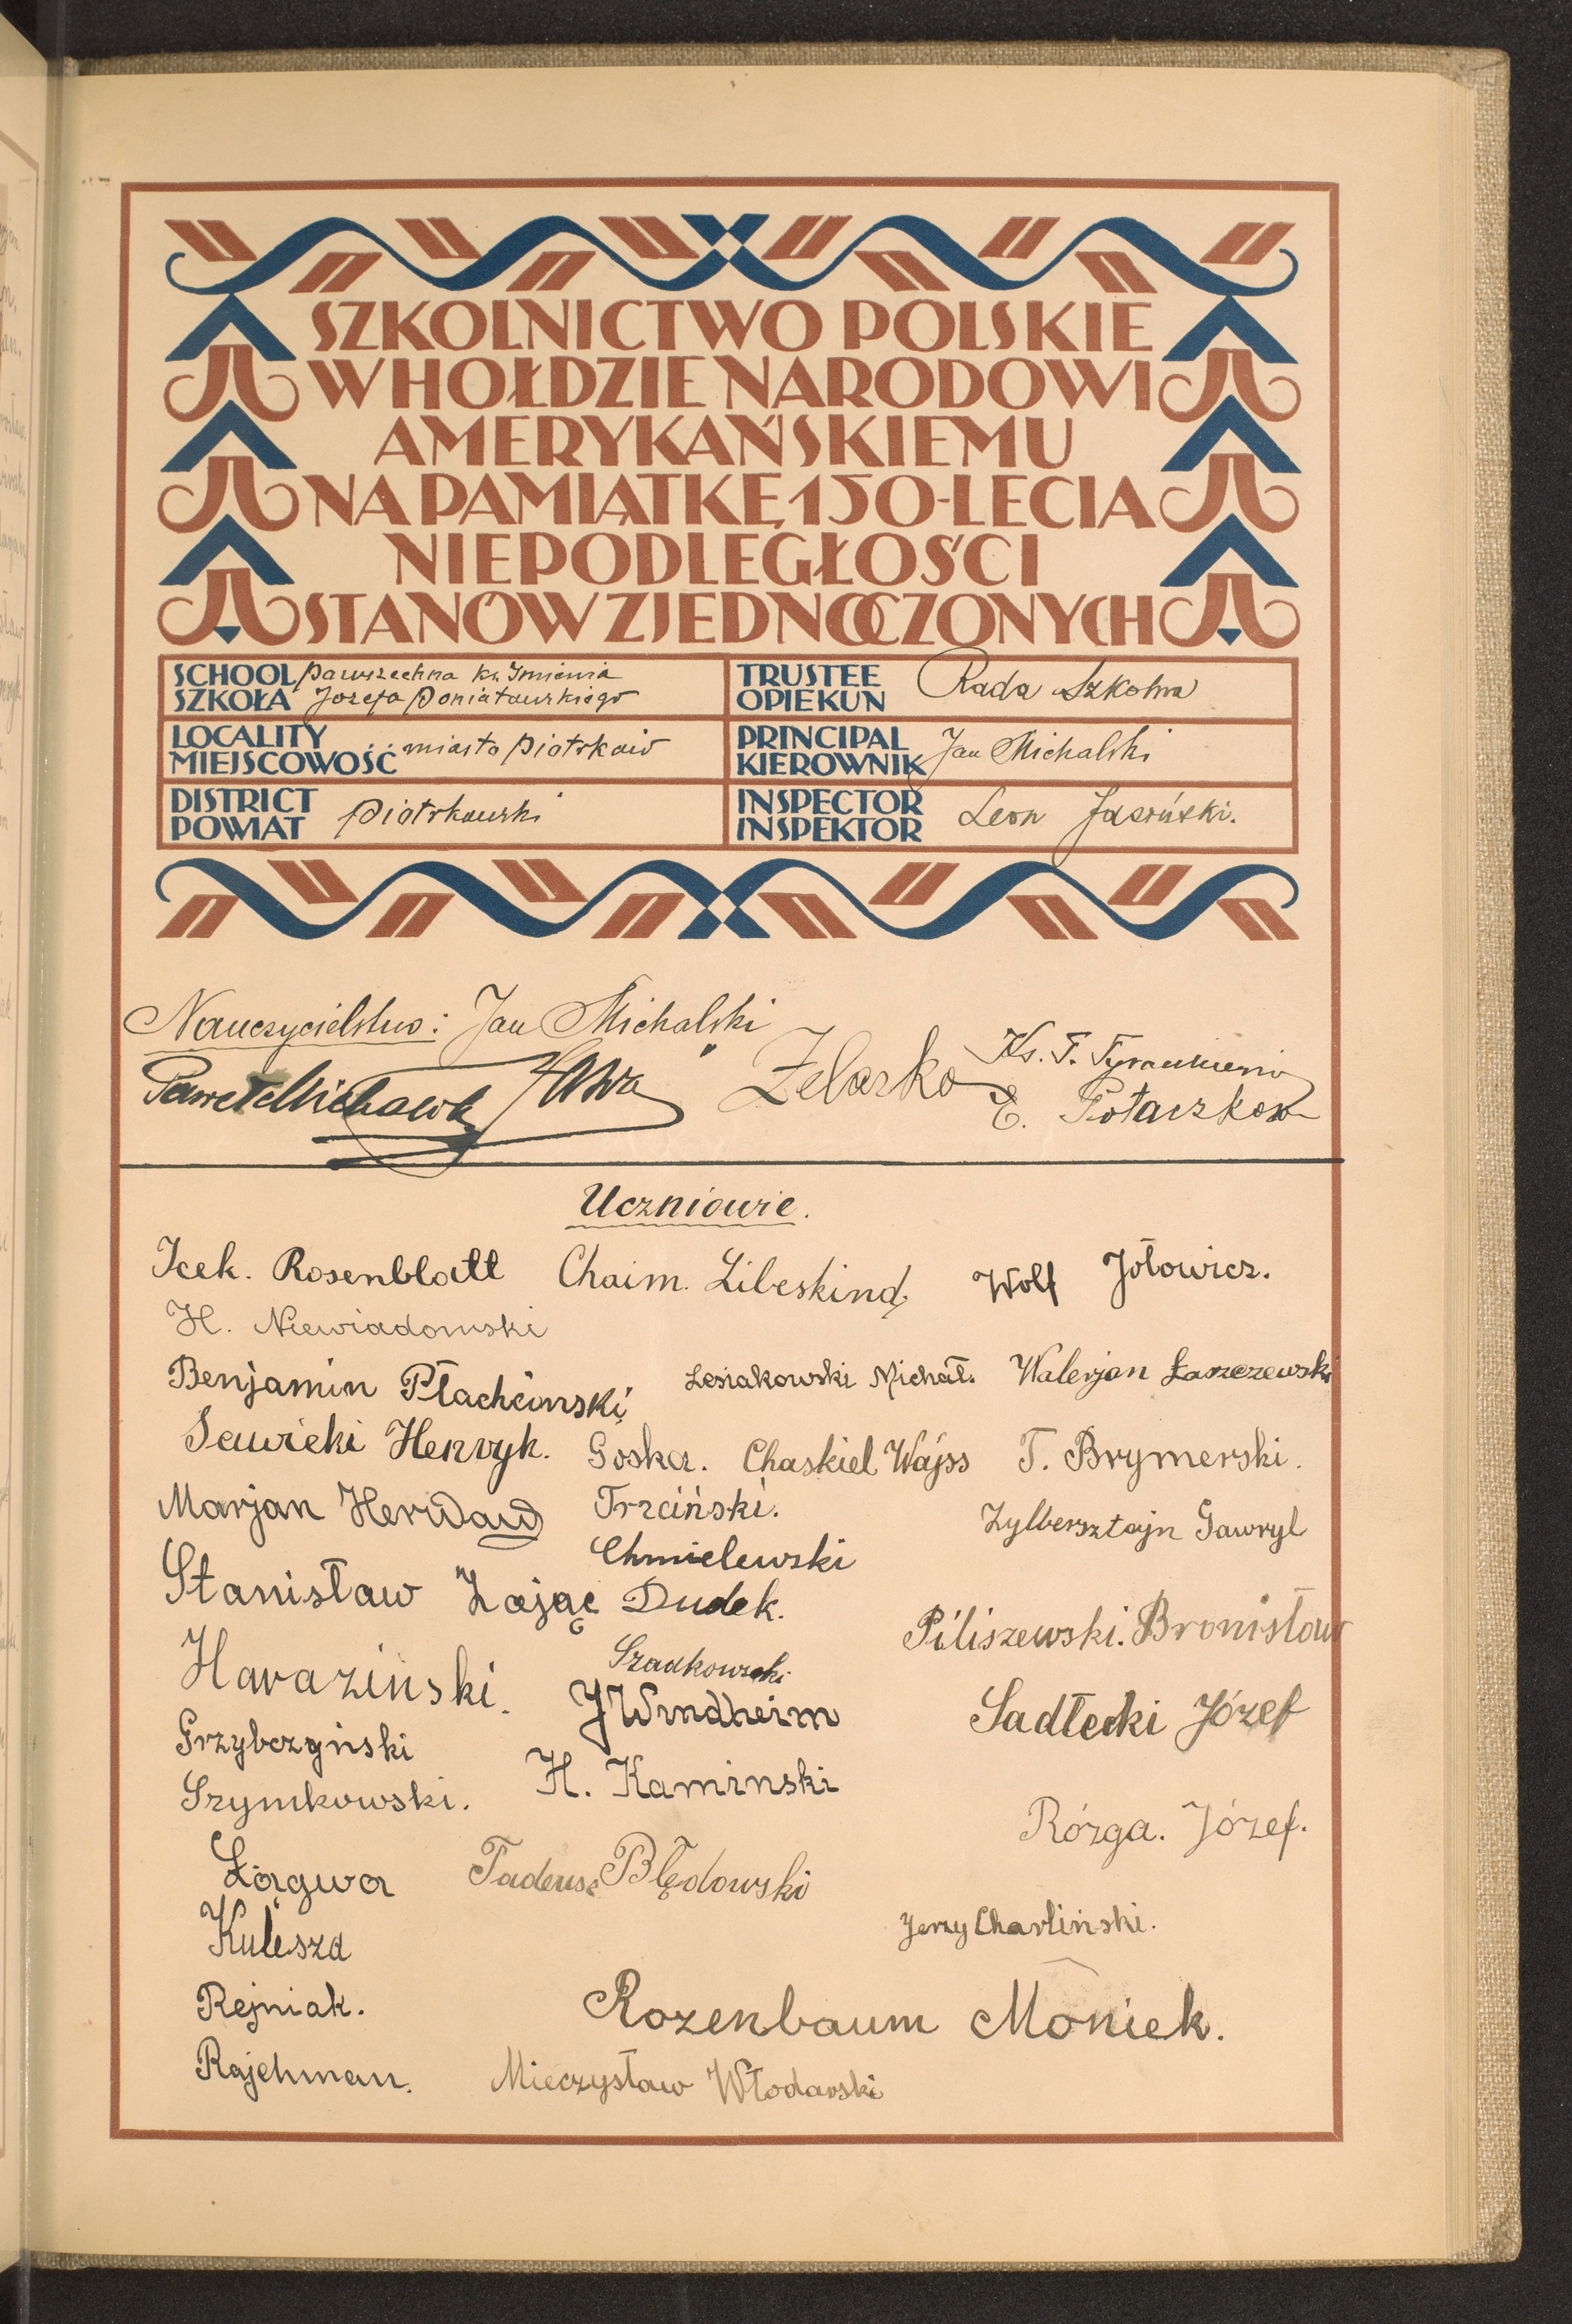 SZKOLNICTWO POLSKIE
W HOŁDZIE NARODOWI
AMERYKAŃSKIEMU
NA PAMIĄTKĘ 150-LECIA
NIEPODLEGŁOŚCI
STANÓW ZJEDNOCZONYCH
SCHOOL Powszechna ks. Imienia
SZKOŁA Józefa Poniatowskiego
TRUSTEE
OPIEKUN Rada Szkolna
LOCALITY
MIEJSCOWOŚĆ miasto Piotrków
PRINCIPAL
KIEROWNIK Jan Michalski
DISTRICT
POWIAT Piotrkowski
INSPECTOR
INSPEKTOR Leon Jasiński.
Nauczycielstwo: Jan Michalski
Paweł Żelasko Ks. T.
E.
Uczniowie.
Icek. Rosenblatt Chaim. Libeskind, Wolf Jółowicz.
H. Niewiadomski
Benjamin Płachciński, Lesiakowski Michał. Walerjan Łaszczewski
Sawicki Henryk. Goska. Chaskiel Wajss T. Brymerski.
Marjan Trzciński. Zylbersztajn Gawryl
Chmielewski
Stanisław Zając Dudek. Piliszewski. Bronisław
Haraziński. Szadkowski
J Windheim Sadłecki Józef
Przybczyński
H. Kaminski
Szymkowski. Rózga. Józef.
Łągwa Tadeusz Błędowski
Kulesza Jerzy Charliński.
Rejniak. Rozenbaum Moniek.
Rajchman. Mieczysław Włodarski